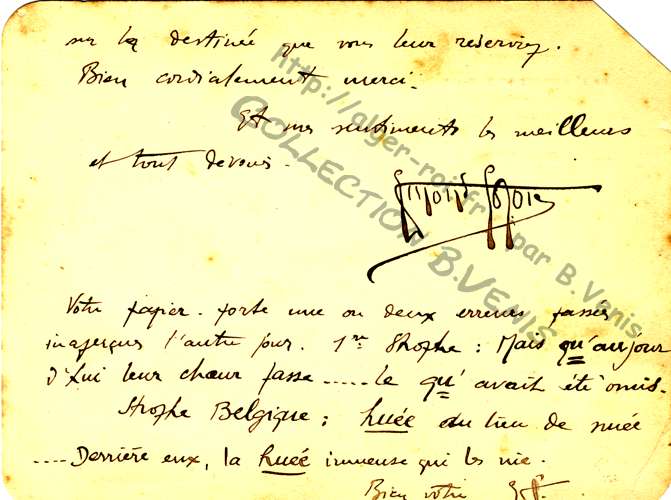 sur la destinée que vous leur réserviez.
Bien cordialement merci.
Et mes sentiments les meilleurs
et tout dévoués.
http://alger-roi.fr par B. Venis
COLLECTION B. VENIS
Votre papier porte une ou deux erreurs passées
inaperçues l'autre jour. 1re Strophe : Mais qu'aujour
d'hui leur chœur fasse ..... le qu' avait été omis.
Strophe Belgique : huée au lieu de nuée
.... Derrière eux, la huée immense qui les nie.
Bien vôtre